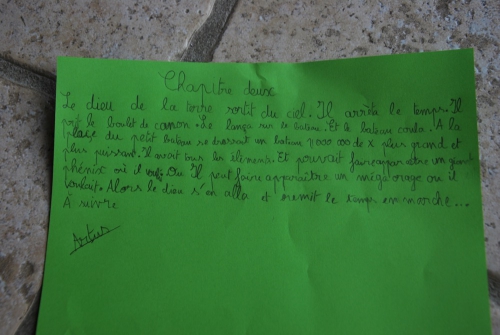 Chapitre deux
Le dieu de la terre sortit du ciel. Il arrêta le temps. Il
prit le boulet de canon. Le lança sur le bateau. Et le bateau coula. A la
place du petit bateau se trouvait un bateau 7000 000 de x plus grand et
plus puissant. Il avait tous les éléments. Et pouvait faire apparaitre un géant
phénix où il Il peut faire apparaître un méga orage ou il
voulait. Alors le dieu s'en alla et remit le temps en marche...
A suivre
Artus